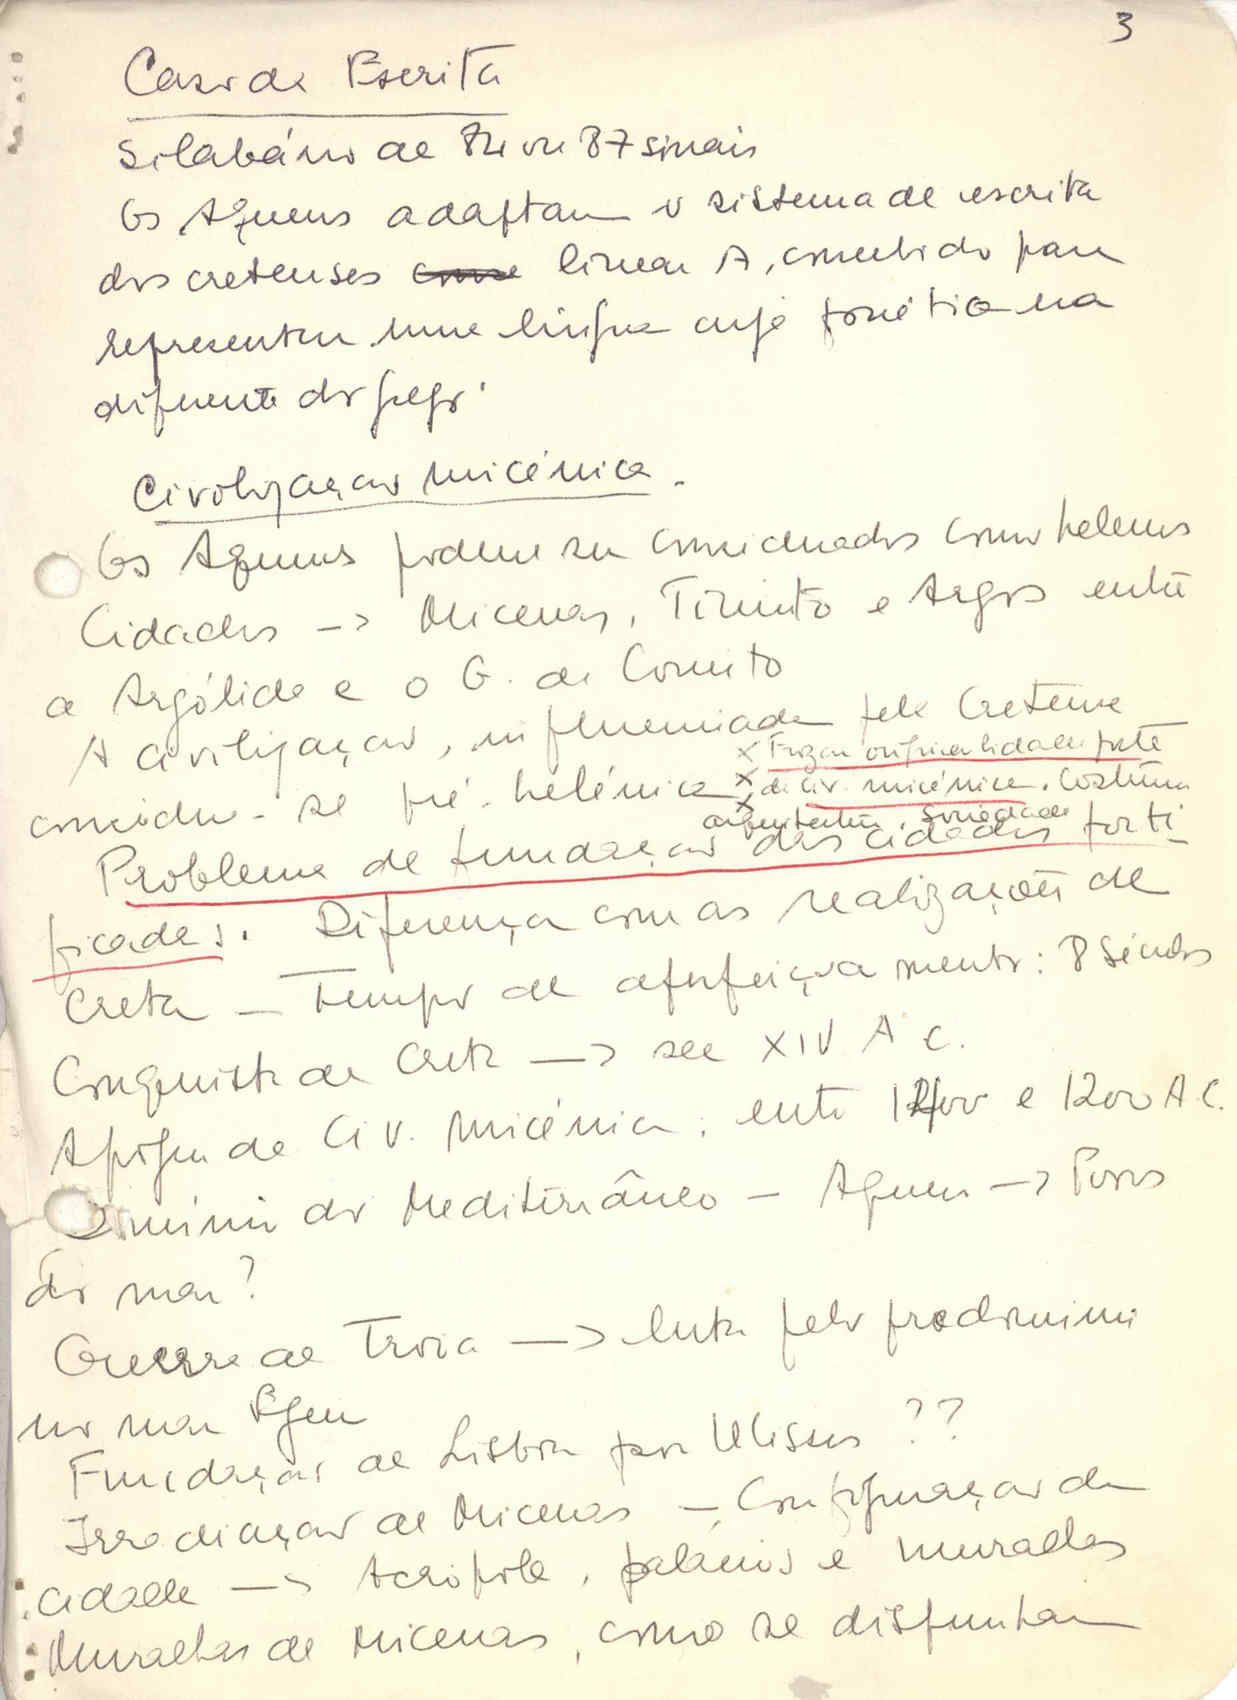 3
Caso da Escrita
Silabário de 82 ou 87 sinais
Os Aqueus adaptam o sistema de escrita
dos cretenses linear A, concebido para
representar uma língua cuja fonética era
diferente do grego.
Civilização micénica.
Os Aqueus podem ser considerados como helenos
Cidades -> Micenas, Tirinto e Argos entre
a Argólida e o G. de Corinto
A civilização, influenciada pela Cretense
considera-se pré-helénica
x Frizar originalidade parte
x da civ. micénica. Costumes
x arquitectura, sociedade
Problema de fundação das cidades forti-
ficadas. Diferença com as realizações de
Creta - Tempo de aperfeiçoamento: 8 séculos
Conquista de Creta -> sec XIV A C.
Apogeu da Civ. Micénica: entre 1400 e 1200 A C.
Domínio do Mediterrâneo - Aqueus -> Povos
do mar?
Guerra de Troia -> luta pelo predomínio
no mar Egeu
Fundação de Lisboa por Ulisses ??
Irradiação de Micenas - Configuração da
cidade -> Acrópole, palácios e muralhas
Muralhas de Micenas, como se dispunham